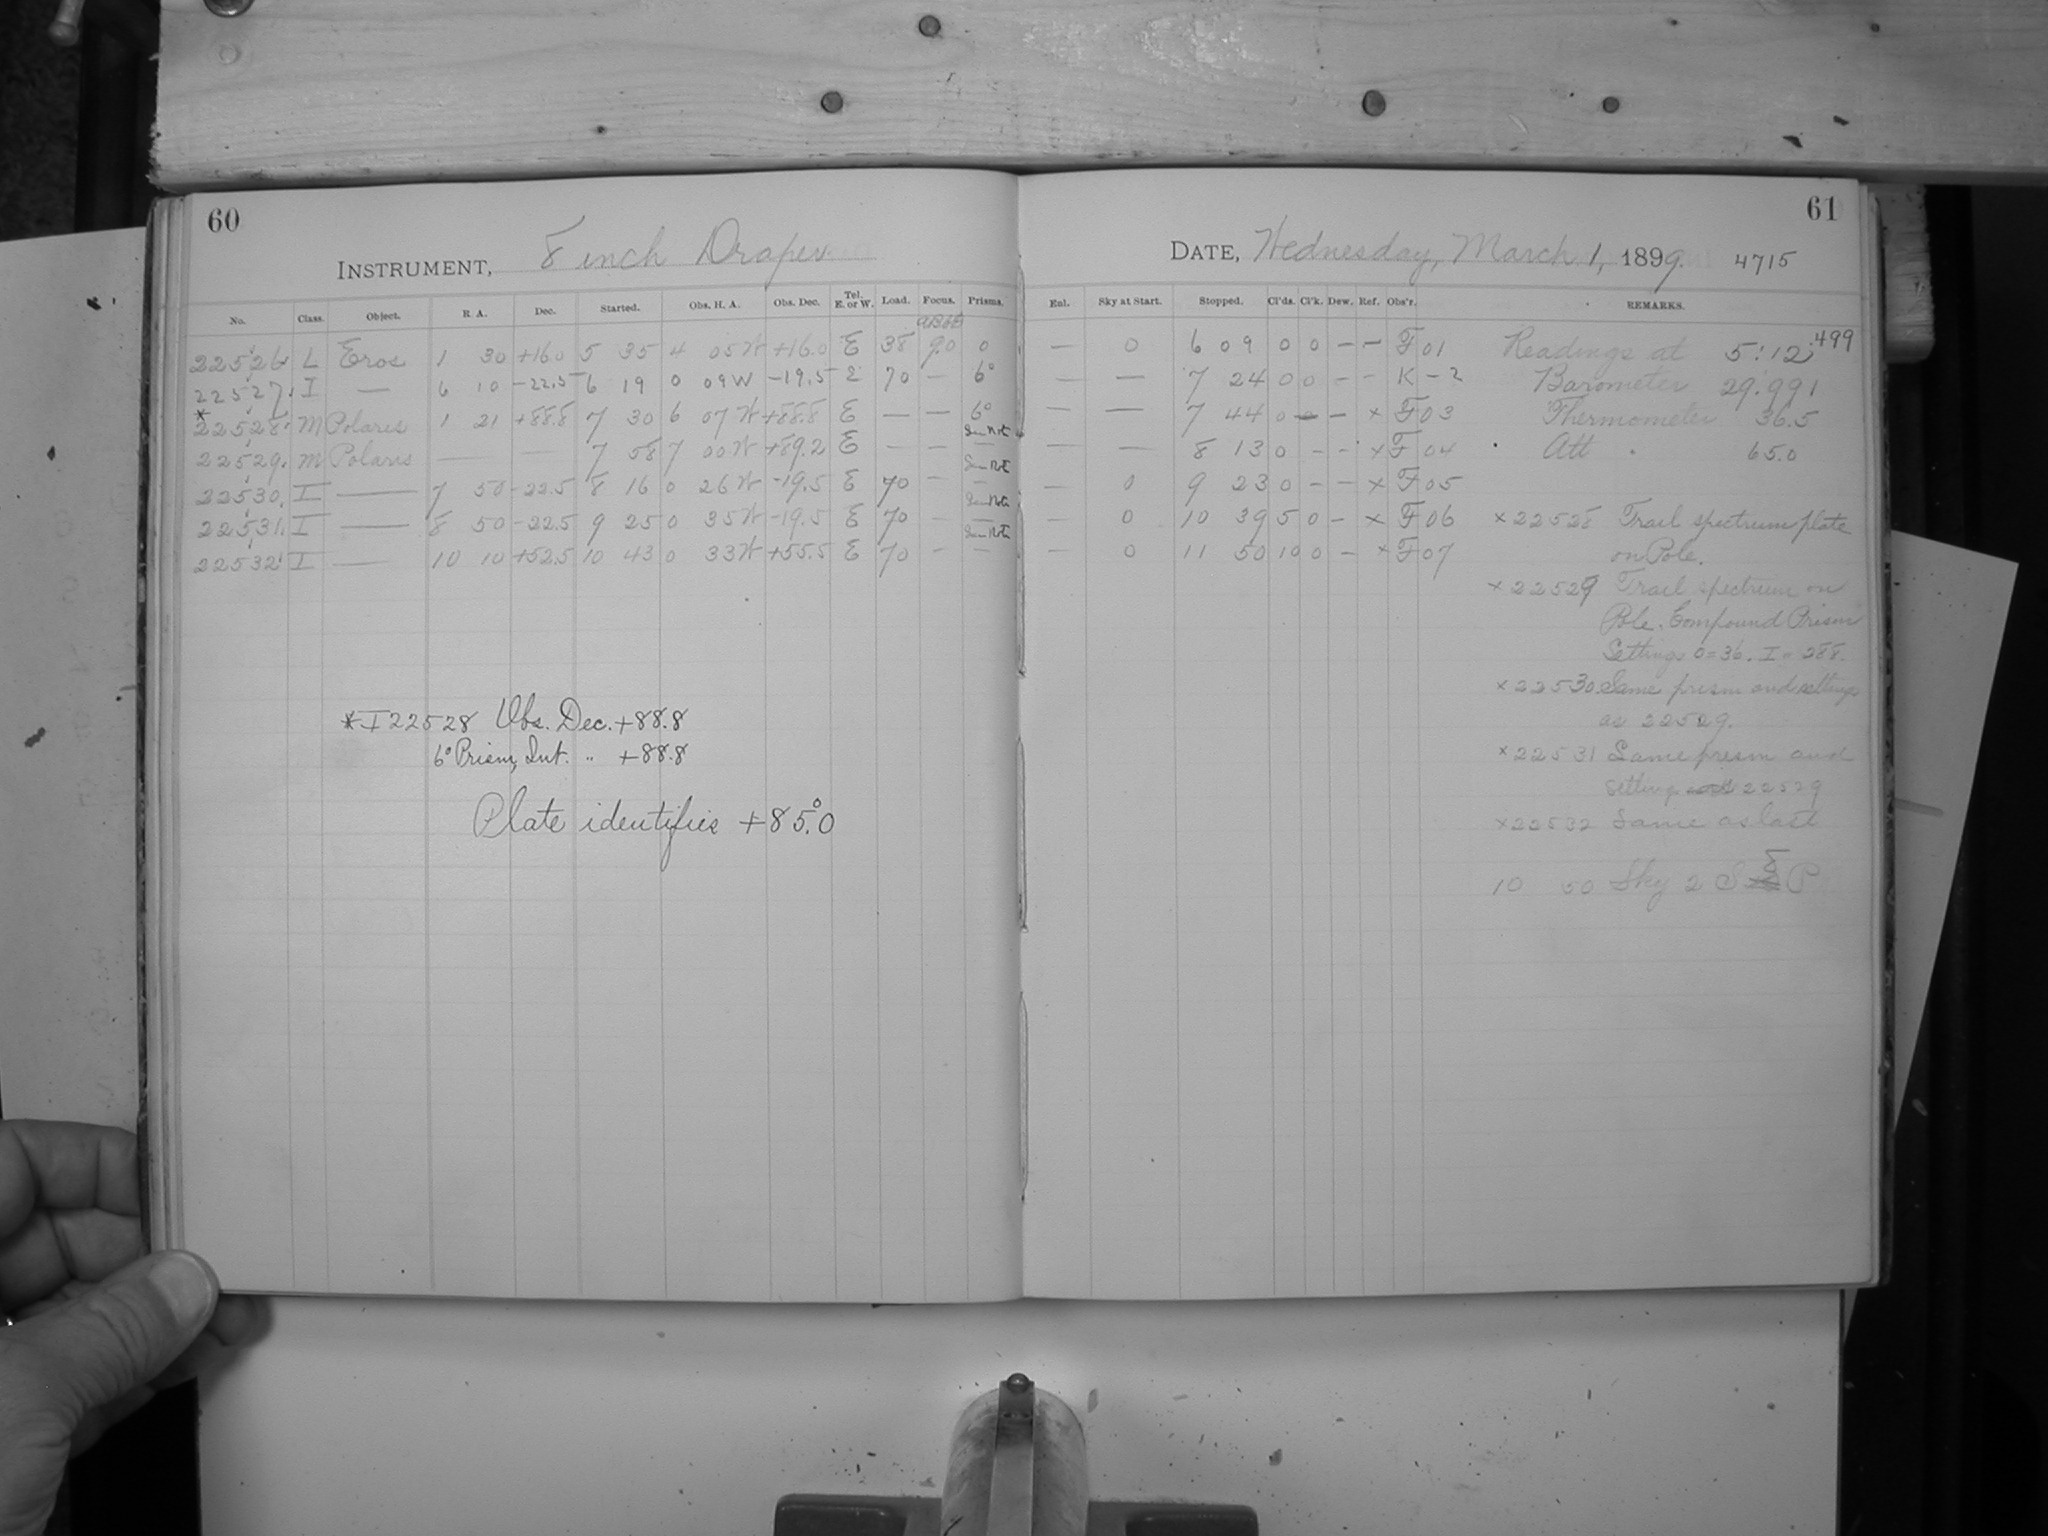 60
INSTRUMENT, 8 inch Draper
No. Class. Object. R A. Dec. Started. Obs. H. A. Obs. Dec. Tel. E. or W. Load. Focus. Prisms.
22526 L Eros 1 30 +16.0 5 35 4 05 W +16.0 E 38 9.0 0
22527 I — 6 10 -22.5 6 19 0 09 W -19.5 E 70 — 6°
*22528 M Polaris 1 21 +88.8 7 30 6 07 W +88.8 E — — 6°
22529 M Polaris — — 7 58 7 00 W +89.2 E — — —
22530 I — 7 50 -22.5 8 16 0 26 W -19.5 E 70 — —
22531 I — 8 50 -22.5 9 25 0 35 W -19.5 E 70 — —
22532 I — 10 10 +52.5 10 43 0 33 W +55.5 E 70 — —
*I 22528 Obs. Dec. +88.8
6° Prism, Int. " +88.8
Plate identifies +85.°0
61
DATE, Wednesday, March 1, 1899. 4715
Enl. Sky at Start. Stopped. Cl'ds. Cl'k. Dew. Ref. Obs'r. REMARKS.
— 0 6 09 0 0 — — F 01 Readings at 5:12 .499
— — 7 24 0 0 - - K - 2 Barometer 29.991
— — 7 44 0 — — x F 03 Thermometer 36.5
— — 8 13 0 - - x F 04 Att " 65.0
— 0 9 23 0 - - x F 05
— 0 10 39 5 0 - x F 06 x 22528 Trail spectrum plate
— 0 11 50 10 0 - x F 07 on Pole.
x 22529 Trail spectrum on
Pole. Compound Prism
Settings 0=36. I = 288.
x 22530 Same prism and settings
as 22529.
x 22531 Same prism and
setting 22529
x 22532 Same as last
10 50 Sky 2 S E P